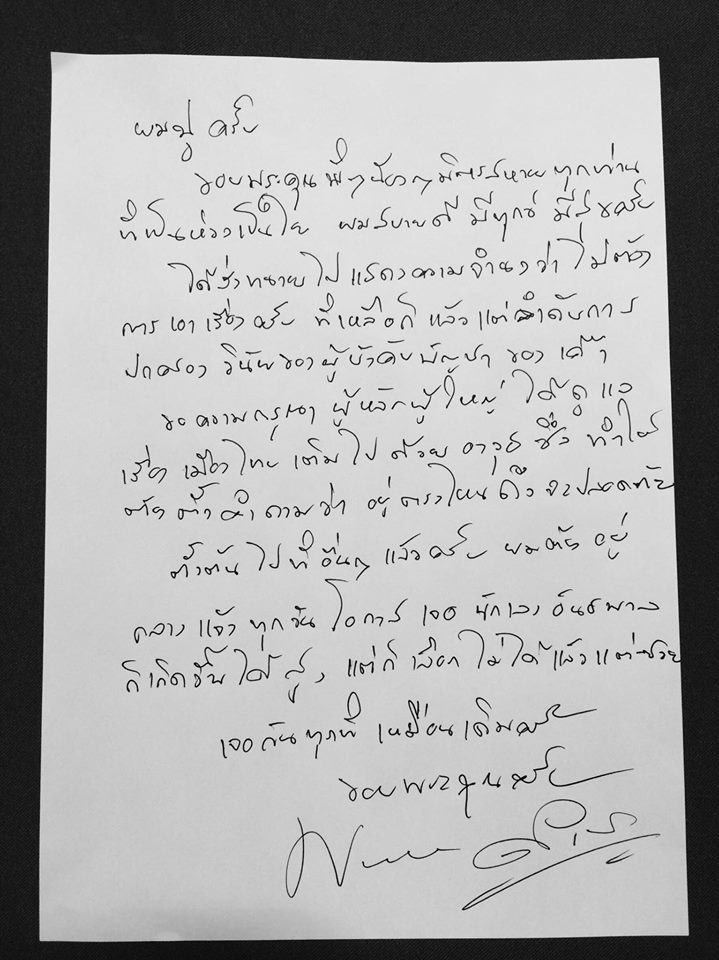 ผมปู ครับ
ขอบพระคุณ พี่ๆ น้องๆ มิตรสหาย ทุกท่าน
ที่เป็นห่วงเป็นใย ผมสบายดี มีทุกข์ มีสุขครับ
ได้ส่งทนายไป แสดงความจำนงว่า ไม่ต้อง
การ เอาเรื่องครับ ที่เหลือก็ แล้วแต่ลำดับการ
ปกครอง วินัยของผู้บังคับบัญชา ของ เค้า
ขอความกรุณา ผู้หลักผู้ใหญ่ ได้ดูแล
เรื่อง เมืองไทย เต็มไปด้วย อาวุธ ซึ่ง ทำให้
ต้องตั้งคำถามว่า อยู่ตรงไหนถึงจะปลอดภัย
ตั้งต้นไปที่อื่นๆ แล้วครับ ผมต้อง อยู่
กลางแจ้ง ทุกวัน โอกาส เจอ นักเลง อันธพาล
ก็เกิดขึ้นได้ สูง, แต่ก็ เลือก ไม่ได้ แล้วแต่ซวย
เจอกันทุกที่ เหมือนเดิมครับ
ขอบพระคุณครับ